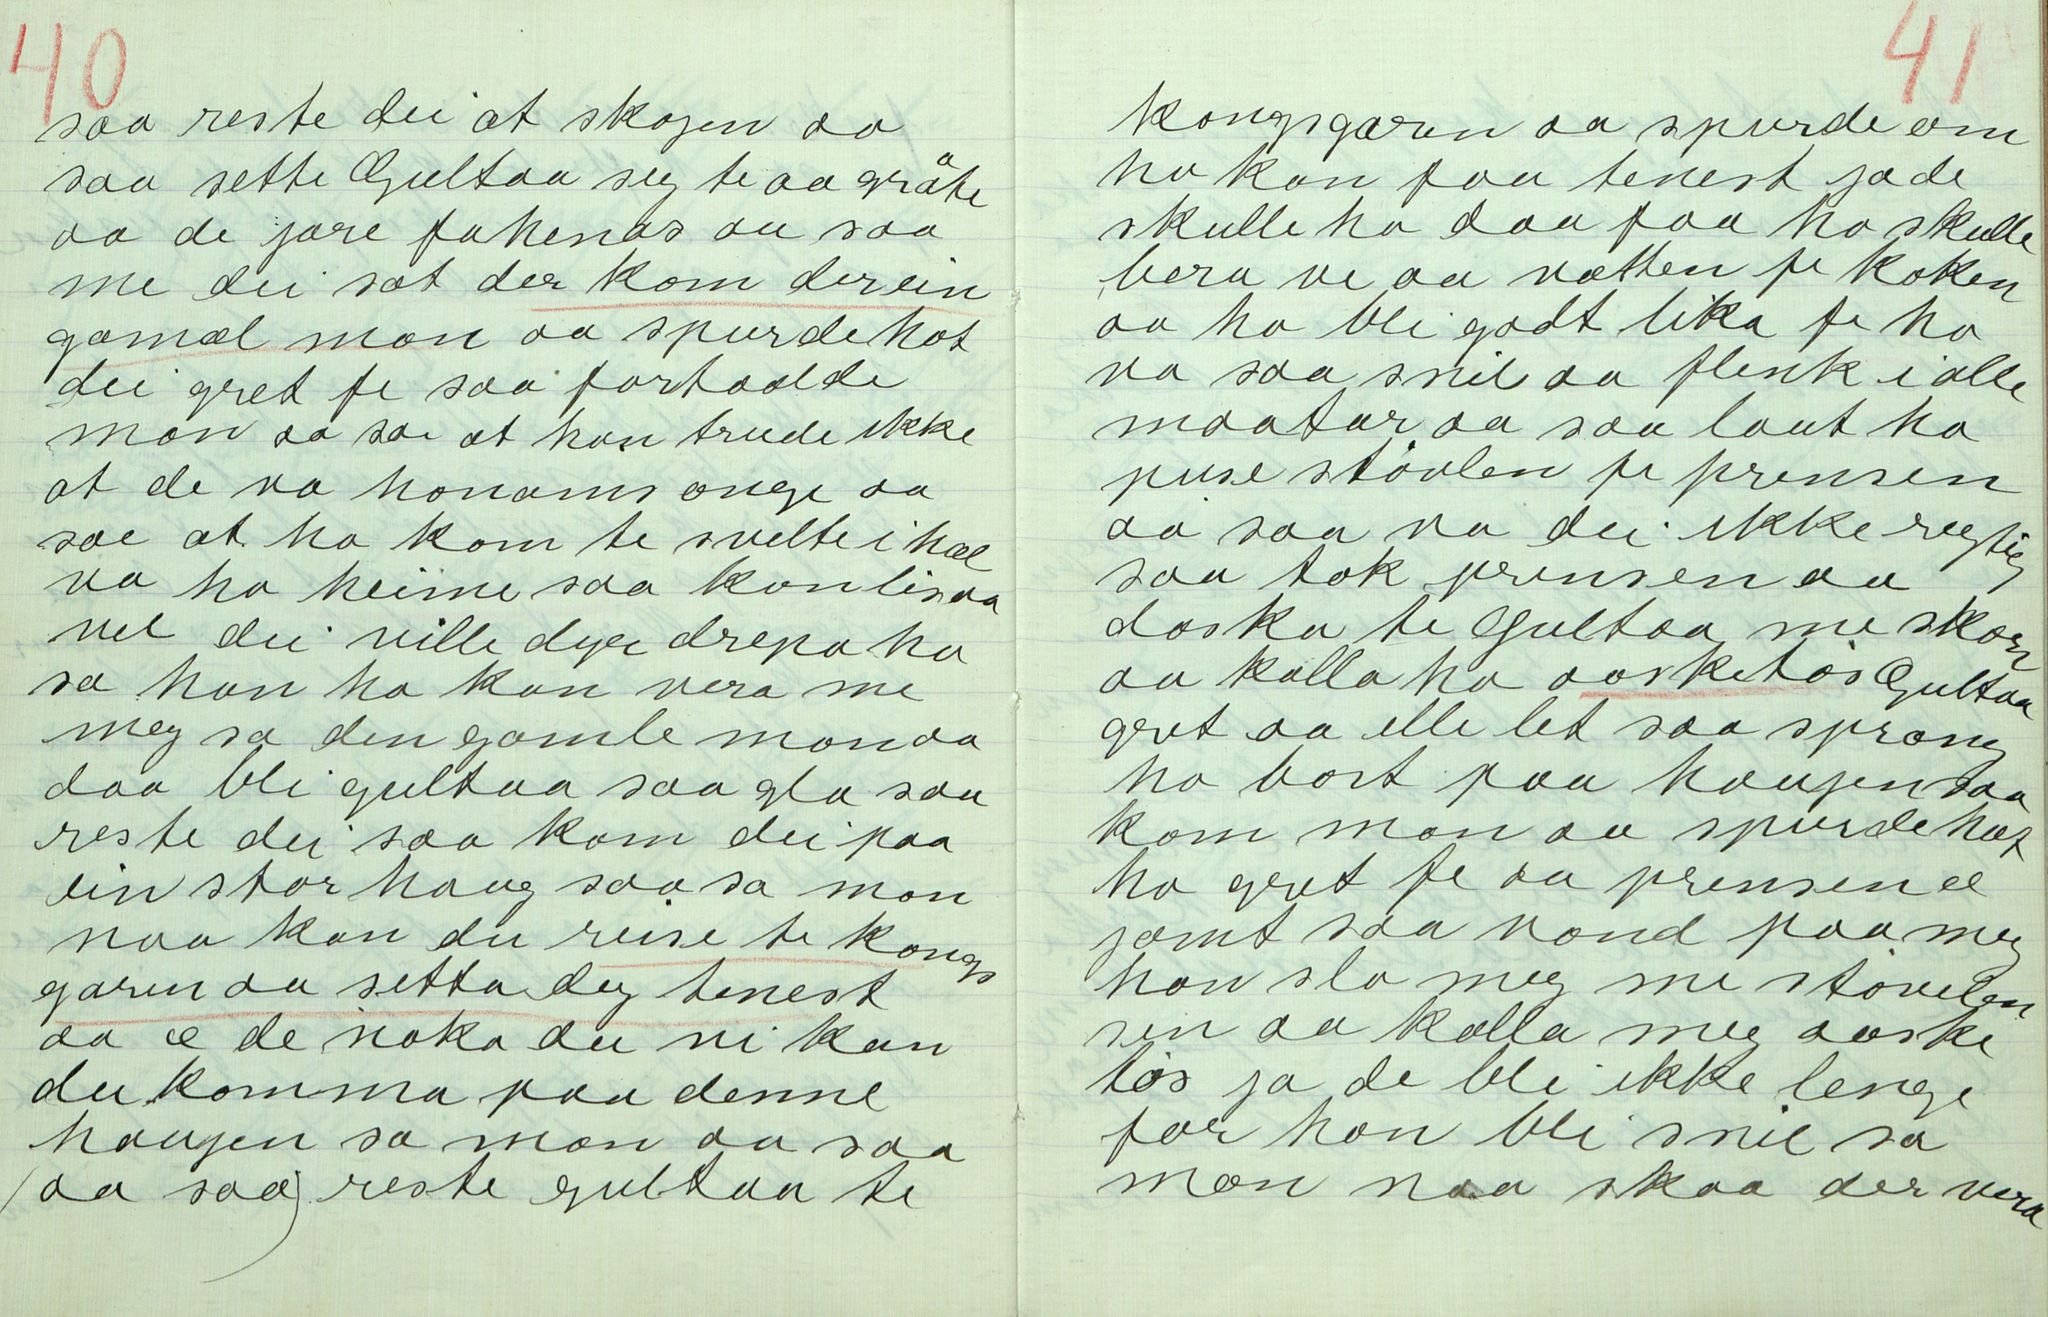 40
saa reste dei at skogen aa
saa sette Gultaa seg te aa gråte
aa de jore fahenas aa saa
me dei sat der kom der ein
gamal man aa spurde hat
dei gret fe saa fortaalde
man aa sae at han trude ikke
at de va honams onge aa
sae at ho kom te svelte i hæl
va ho heime saa kan lisaa
vel dei ville dye drepa ho
sa han ho kan vera me
meg sa den gamle man aa
daa bli gultaa saa gla saa
reste dei saa kom dei paa
ein stor haug saa sa man
naa kan du reise te kongs
garen aa setta deg tenest
aa æ de noka du ni kan
du komma paa denne
haugen sa man aa saa
(aa saa) reste gultaa te
41
kongsgaren aa spurde om
ho kan faa tenest ja de
skulle ho daa faa ho skulle
bera ve aa vatten fe koken
aa ho bli godt lika fe ho
va saa snil aa flenk i alle
maatar aa saa laut ho
puse støvlen fe prensen
aa saa va dei ikke regtig
saa tok prensen aa
daska te Gultaa me skoen
aa kalla ho aasketøs Gultaa
gret aa elle let saa sprang
ho bort paa haugen saa
kom man aa spurde hat
ho gret fe aa prensen æ
jamt saa vond paa meg
han sla meg me støvelen
sin aa kalla meg aaske
tøs ja de bli ikke lenge
før han bli snil sa
man naa skaa der vera